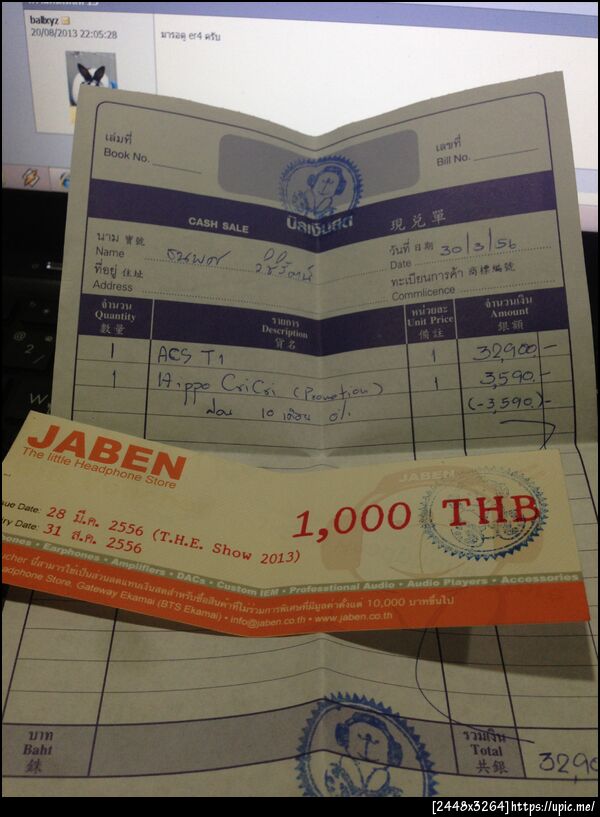 ballxyz
20/08/2013 22:05:28
มารอดู er4 ครับ
เล่มที่
Book No.
เลขที่
Bill No.
CASH SALE บิลเงินสด 現兑單
นาม 寶號
Name
วันที่ 日期
Date 30/3/56
ที่อยู่ 住址
Address
ทะเบียนการค้า 商標編號
Commlicence
จำนวน
Quantity
數量
รายการ
Description
貨名
หน่วยละ
Unit Price
備註
จำนวนเงิน
Amount
銀額
1 ACS T1 1 32,900.-
1 Hippo CriCri (Promotion) 1 3,590.-
ผ่อน 10 เดือน 0% (-3,590.)-
JABEN
The little Headphone Store
JABEN
1,000 THB
sue Date: 28 มี.ค. 2556 (T.H.E. Show 2013)
ry Date: 31 ส.ค. 2556
ones • Earphones • Amplifiers • DACs • Custom IEM • Professional Audio • Audio Players • Accessories
ucher นี้สามารถใช้เป็นส่วนลดแทนเงินสดสำหรับซื้อสินค้าที่ไม่ร่วมการพิเศษที่มีมูลค่าตั้งแต่ 10,000 บาทขึ้นไป
adphone Store, Gateway Ekamai (BTS Ekamai) • info@jaben.co.th • www.jaben.co.th
บาท
Baht
銖
รวมเงิน
Total
共銀
32,90
[2448x3264]https://upic.me/